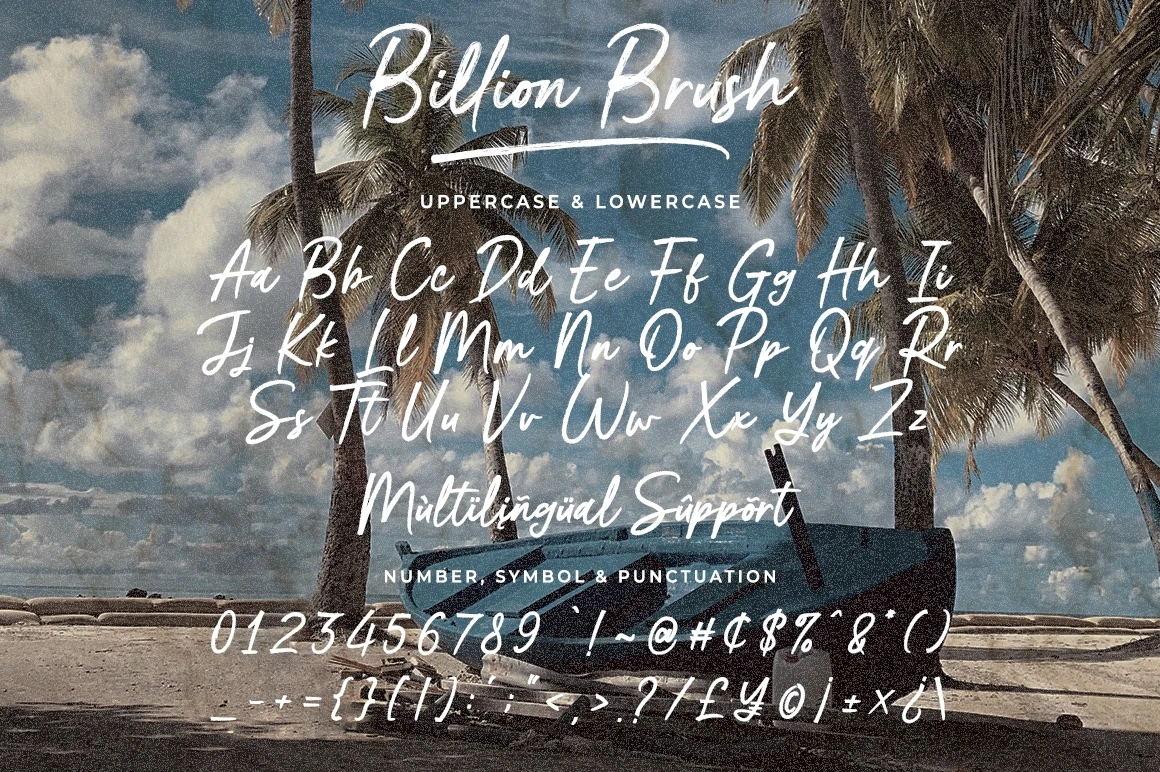 Billion Brush
UPPERCASE & LOWERCASE
Aa Bb Cc Dd Ee Ff Gg Hh Ii
Jj Kk Ll Mm Nn Oo Pp Qq Rr
Ss Tt Uu Vv Ww Xx Yy Zz
Mùltïlįñgüal Sûppõrt
NUMBER, SYMBOL & PUNCTUATION
0123456789 `!~@#₵$%^&*()
_-+={}[|]:';"<,>.?/£¥©¡±×¿\